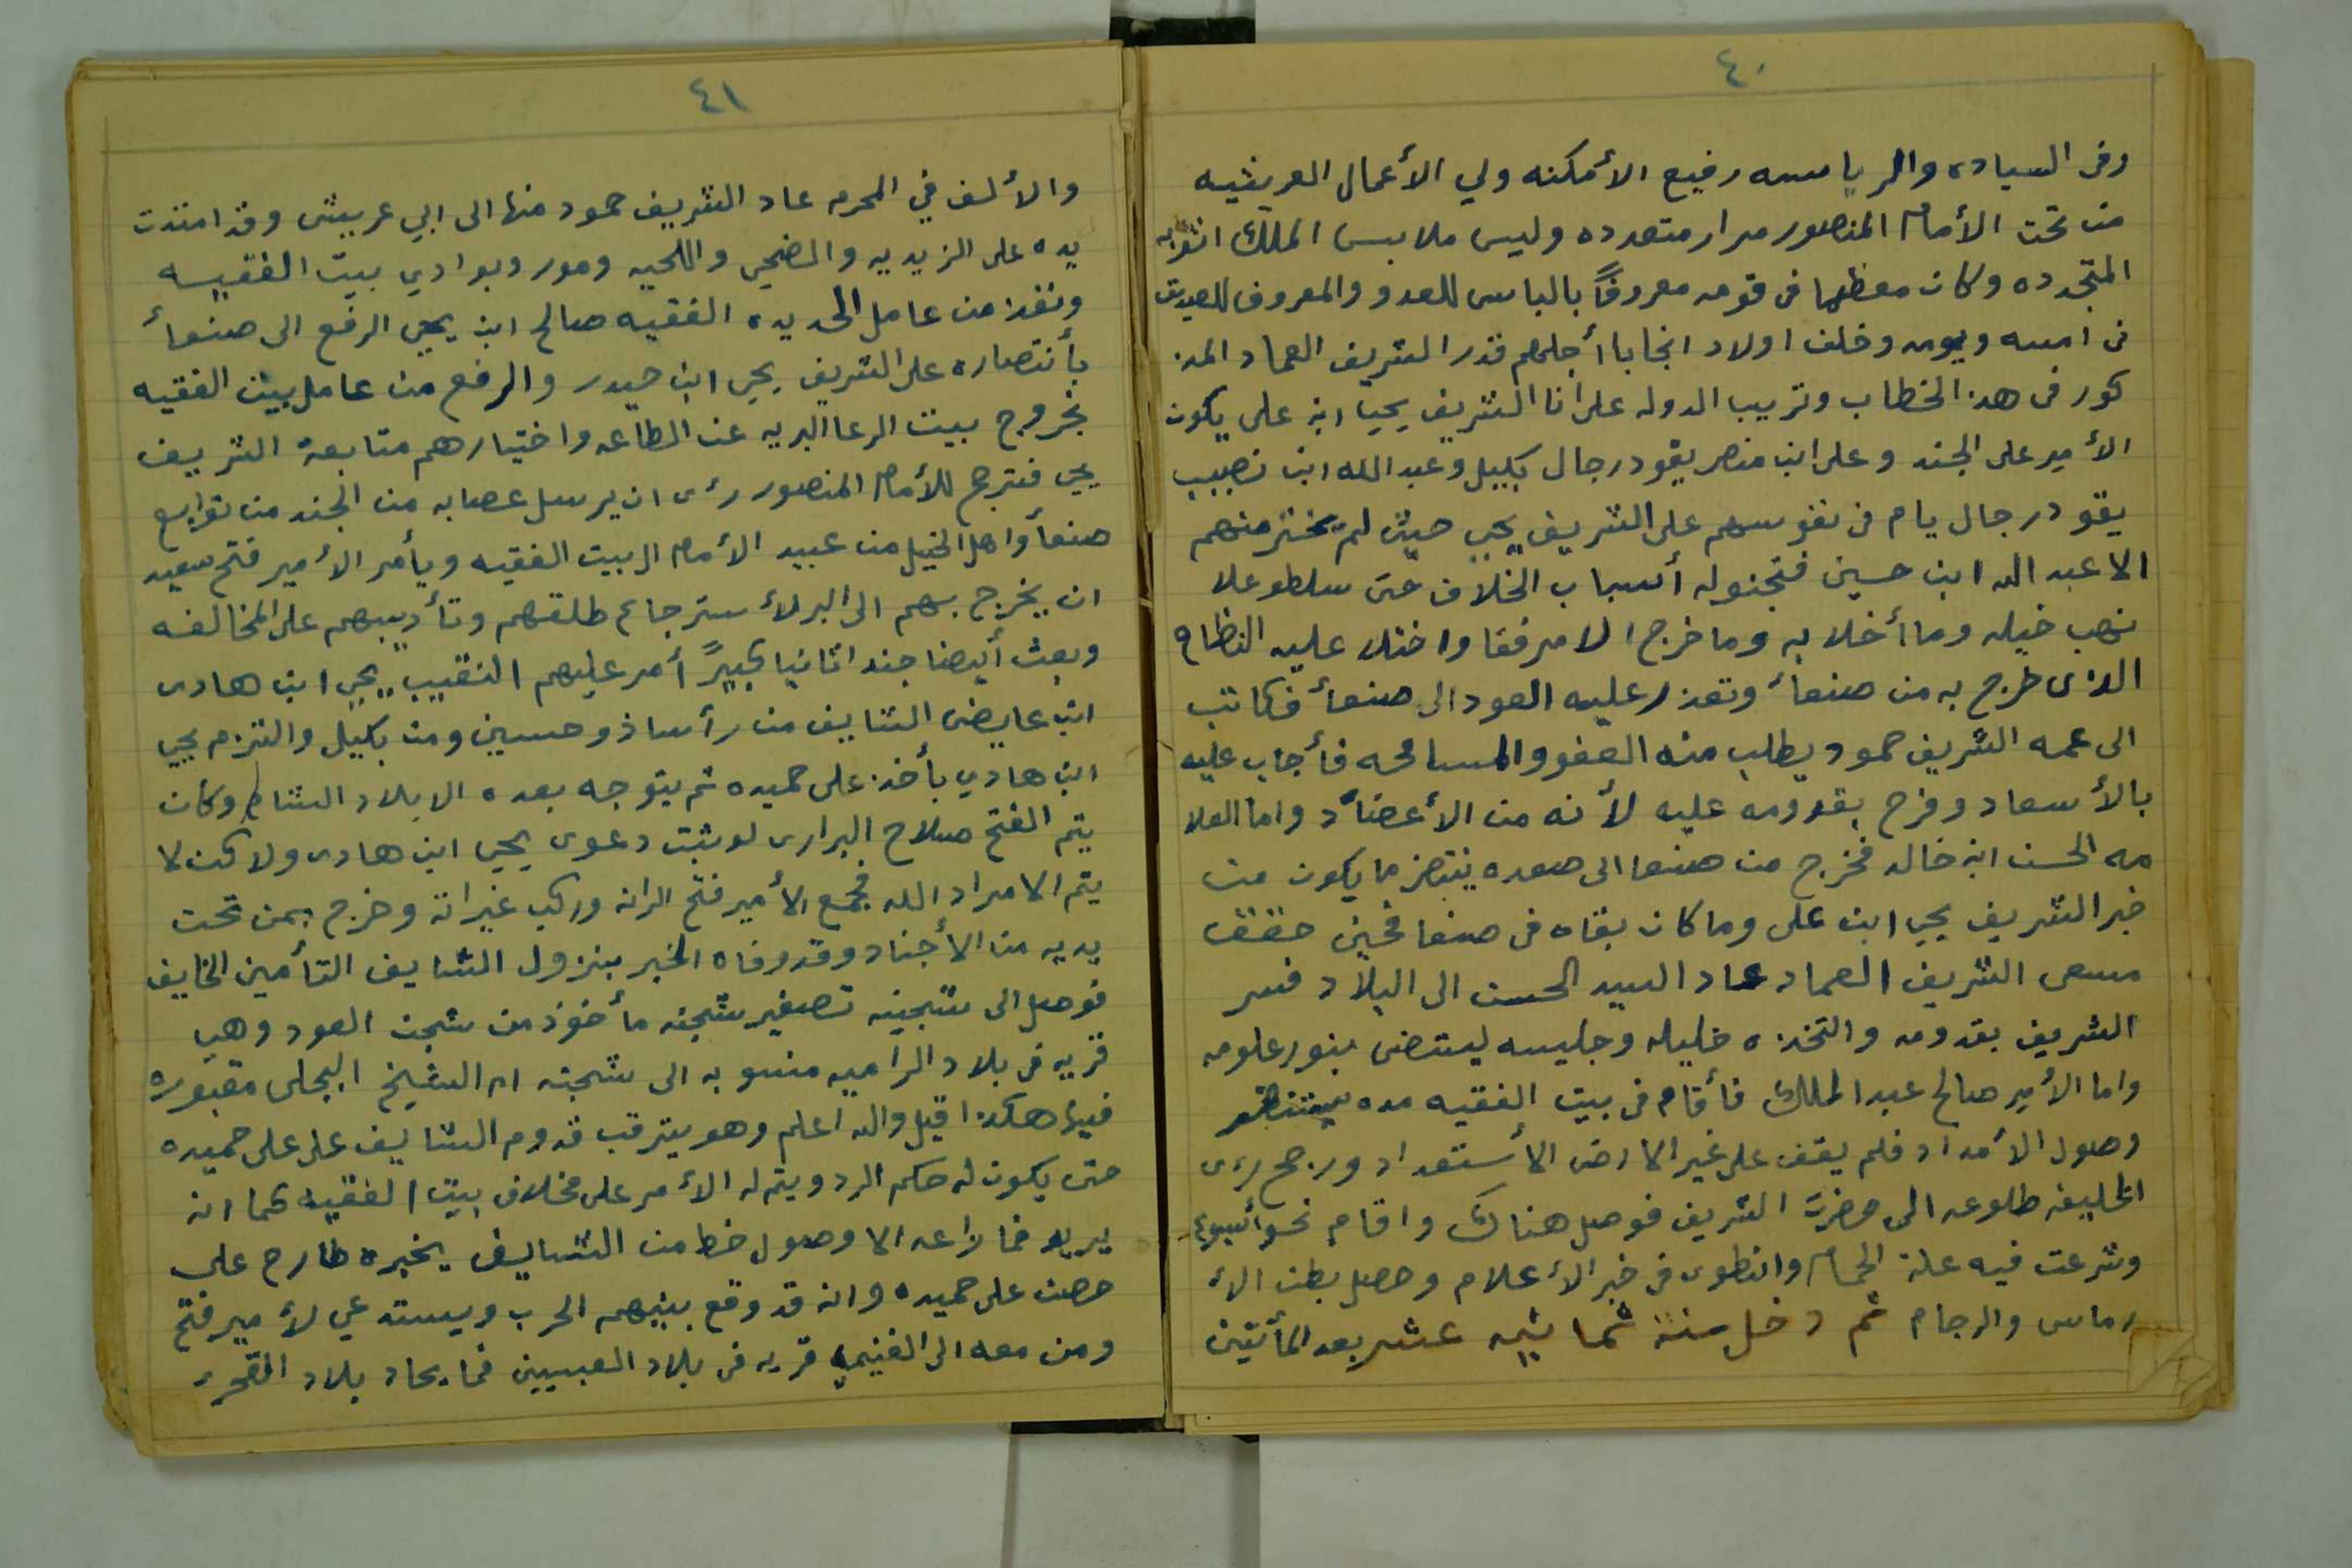 ٤٠
وفى السياده والرياسه رفيع الأمكنه ولي الأعمال العريشيه
من تحت الأمام المنصور مرار متعدده وليس ملابس الملك
المتجدده وكان معظما فى قومه معروفاً بالباس للعدو والمعروف للصديق
فى امسه ويومه وخلف اولاد انجابا أجلهم قدر الشريف العماد المذ
كور فى هذ الخطاب وتريب الدوله على انا الشريف يحيا ابن على يكون
الأمير على الجند وعلى ابن منصر يقود رجال بكيل وعبد الله ابن نصيب
يقود رجال يام فى نفوسهم على الشريف يحيى حيث لم يختر منهم
الا عبد الله ابن حسين فتجنوله أسباب الخلاف حتى سلطو علا
نهب خيله وما أخلا به وما خرج الا مرفقا واختلا عليه النظام
الذى خرج به من صنعاء وتعذر عليه العود الى صنعاء فكاتب
الى عمه الشريف حمود يطلب منه العفو والمسامحه فأجاب عليه
بالأسعاد وفرح بقدومه عليه لأنه من الأعضاد واما العلا
مه الحسن ابن خالد فخرج من صنعا الى صعده ينتضر ما يكون من
خبر الشريف يحيى ابن على وما كان بقاه فى صنعا فحين حقق
مسعى الشريف العماد عاد السيد الحسن الى البلاد فسر
الشريف بقدومه والتخذه خليله وجليسه ليستضى بنور علومه
واما الأمير صالح عبد الملك فأقام فى بيت الفقيه مده
وصول الأمداد فلم يقف على غير الارض الأستعداد ورجح رى
الخليفه طلوعه الى حضرت الشريف فوصل هناك واقام نحو أسبوع
وشرعت فيه علة الحمام وانطوى فى خبر الأعلام وحصل بطن الأ
رماس والرجام ثم دخل سنة ثمانيه عشر بعد المأتين
٤١
والألف في المحرم عاد الشريف حمود منها الى ابي عريش وقد امتدت
يده على الزيديه والضحي واللحيه ومور وبوادي بيت الفقيسه
ونفذ من عامل الحديده الفقيه صالح ابن يحيى الرفع الى صنعاء
بأنتصاره على الشريف يحيى ابن حيدر والرفع من عامل بيت الفقيه
بخروج بيت الرعا البريه عن الطاعه واختيارهم متابعة الشريف
يحيى فترجح للأمام المنصور رى ان يرسل عصابه من الجند من توابع
صنعاء واهل الخيل من عبيد الأمام الى بيت الفقيه ويأمر الأمير فتح سعيد
ان يخرج بهم الى البر لأسترجاع طلقهم وتأديبهم على المخالفه
وبعث أيضا جندا ثانيا كبيرً أمر عليهم النقيب يحيى ابن هادى
ابن عايض الشايف من رأسا ذو حسين ومن بكيل والتزم يحيى
ابن هادي بأخذ على حميده ثم يتوجه بعده الا بلاد الشام وكان
يتم الفتح صلاح البرارى لو ثبت دعوى يحيى ابن هادى ولا كن لا
يتم الا مراد الله فجمع الأمير فتح الرانه وركب غيرانة وخرج بمن تحت
يديه من الأجناد وقد وفاه الخبر بنزول الشايف التأمين الخايف
فوصل الى شجينه تصغير شجنه مأخوذ من شجن العود وهي
قريه فى بلاد الراميه منسوبه الى شجنه ام الشيخ البجلى مقبوره
فيها هكذا قيل والله اعلم وهو يترقب قدوم الشايف على على حميده
حتى يكون له حكم الرد ويتم له الأمر على مخلاف بيت الفقيه كما انه
يريد فما راعه الا وصول خط من الشايف يخبره طارح على
حصن على حميده وانه قد وقع بينهم الحرب ويستدعي لأمير فتح
ومن معه الى الغنيميه قريه فى بلاد العبسيين فما يحاد بلاد القحرى